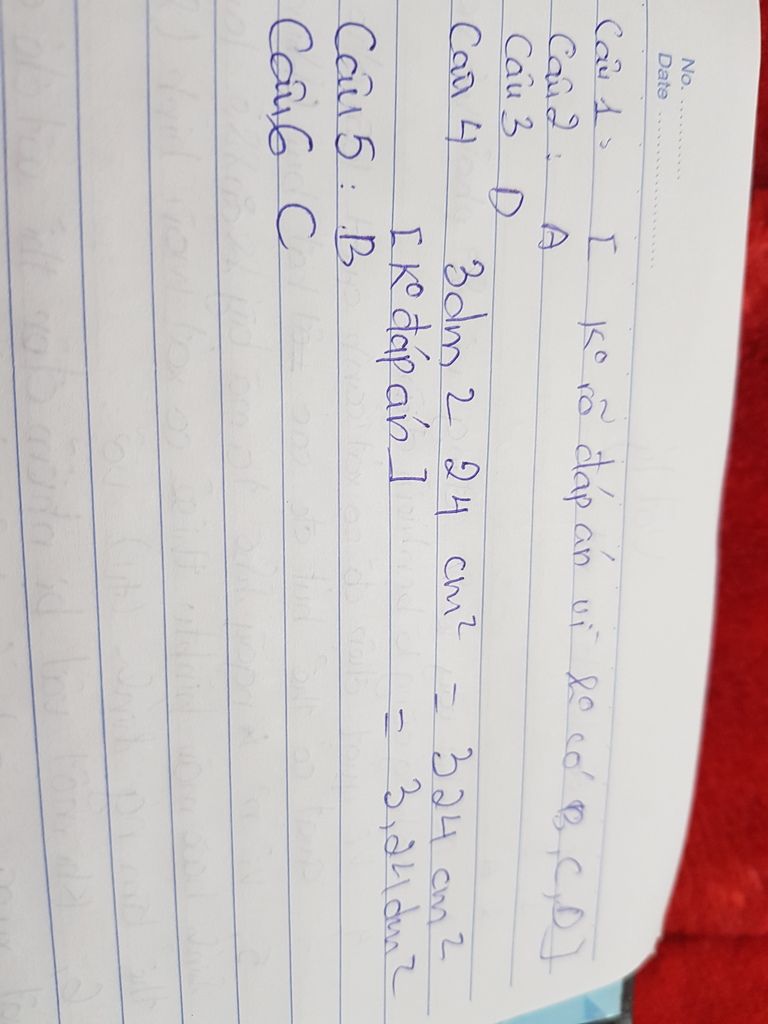 No. ................
Date ................
Câu 1 : [ K° rõ đáp án vì k° có B, C, D]
Câu 2 : A
Câu 3 D
Câu 4 3dm 2 24 cm² = 324 cm²
[K° đáp án] = 3,24dm²
Câu 5 : B
Câu 6 C